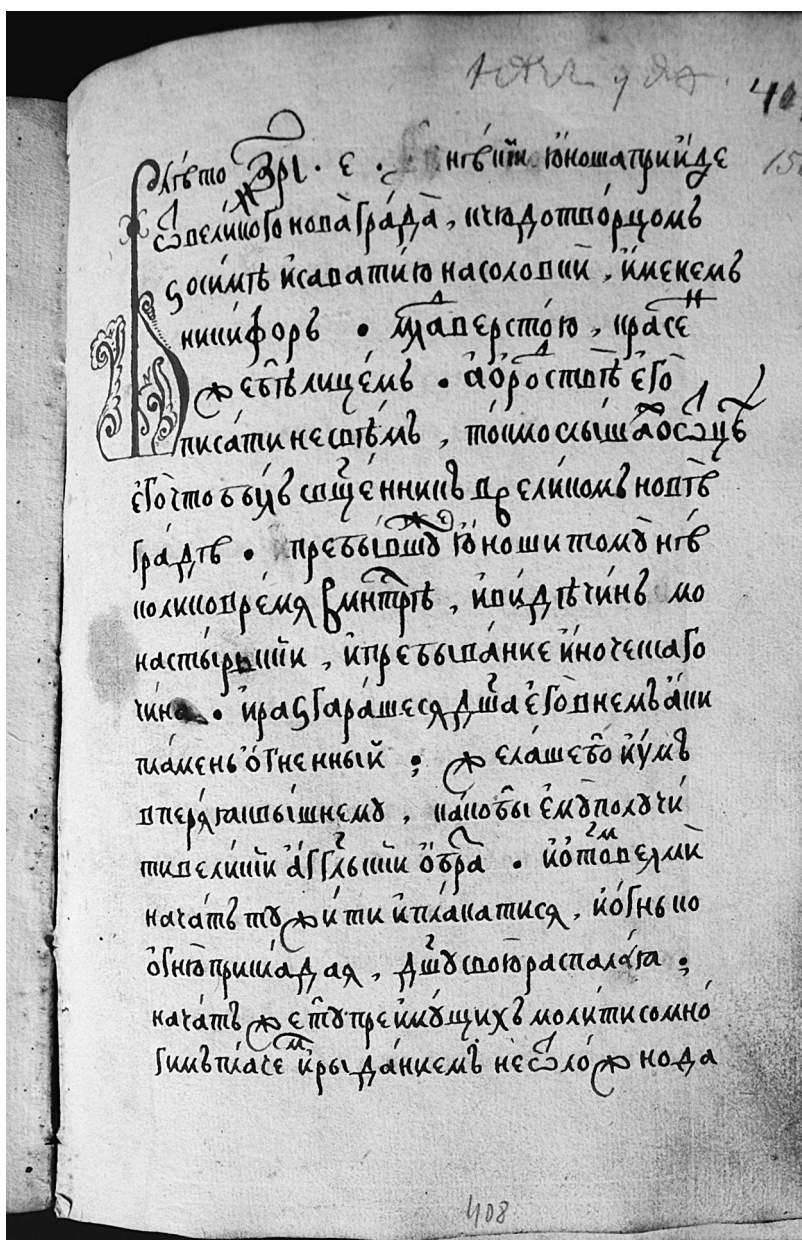 Влѣто ҂зрı҃ · е · нѣкїи ю҆ноша прїи́де
ѿ вели́кого нова̀гра́да̀, к чюдотво́рцомъ
зоси́мѣ и҆ савати́ю на соловкїи, и҆менемъ
никифоръ · мла́д верстою, красе́н
же бѣ̀ лице́мъ · а҆ о҆ ро́дствѣ є҆го̀
писа́ти не свѣ́мъ, то́кмо слы́шах о ѿцъ
є҆го̀ что бы́лъ свѧще́нникъ в вели́комъ новѣ̀
гра́дѣ · пребы́вшу ю҆ноши тому̀ нѣ
колико вре́мѧ в мнтрѣ̀, и҆ ви́дѣ чи́нъ мо
насты́рьскїи, и҆ пребыва́ние и҆ноческаго
чи́на · и҆ разгара́шесѧ дш҃а є҆го̀ в нем ъ а҆ки
пламень о҆́гненный ; жела́ше бо и҆ у҆́мъ
впера́ѧ к вы́шнему, ка́ко бы є҆му̀ получи́
ти вели́кїи а҆́гг҃льскїи о҆́браз · и҆ о҆ то́м вельмѝ
нача́тъ тужи́ти и҆ пла́катисѧ, и҆ о҆́гнь ко
о҆гню̀ прикла́даѧ, дш҃у свою̀ распала́ѧ ;
нача́тъ же ту̀ преи҆му́щихъ моли́ти со мно́
гимъ плаче́м и҆ рыда́нием ъ неѿло́жно да
408